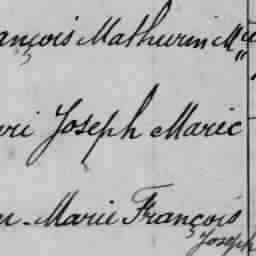 ançois Mathurin M
ri Joseph Marie
Marie François
Joseph